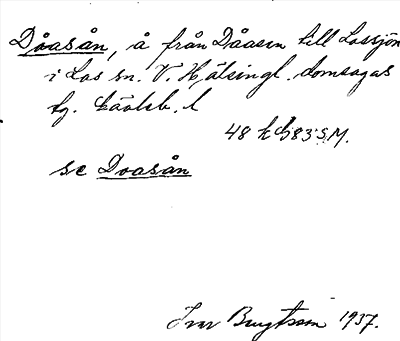 Dåasån, å från Dåasen till Lossjön
i Los sn. V. Hälsingl. domsagas
tg. Gävleb. l
48 h G 83 S.M.
se Doasån
Ivar Bengtsson 1937.